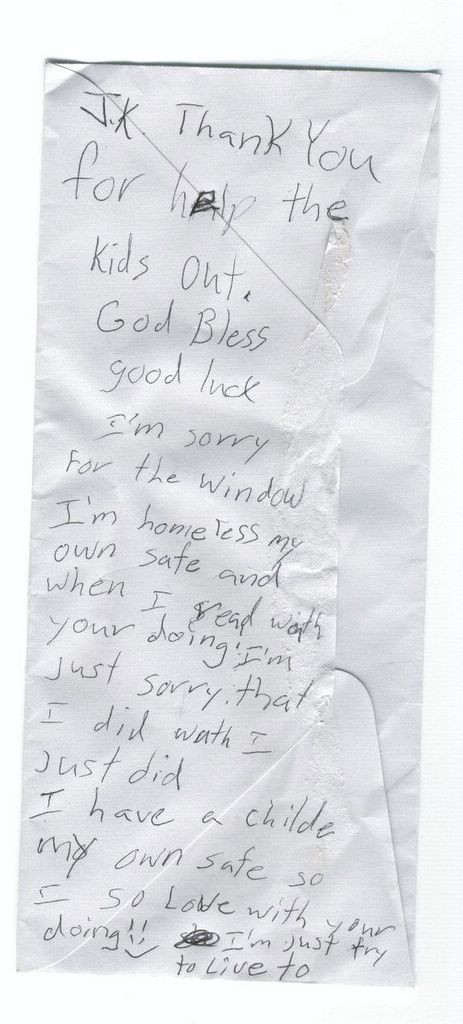 J.K. Thank You
for help the
kids out.
God Bless
good luck
I'm sorry
For the window
I'm homeless my
own safe and
when I read wath
your doing! I'm
just sorry. that
I did wath I
just did
I have a childe
my own safe so
I so Love with your
doing!! I'm just try
to Live to